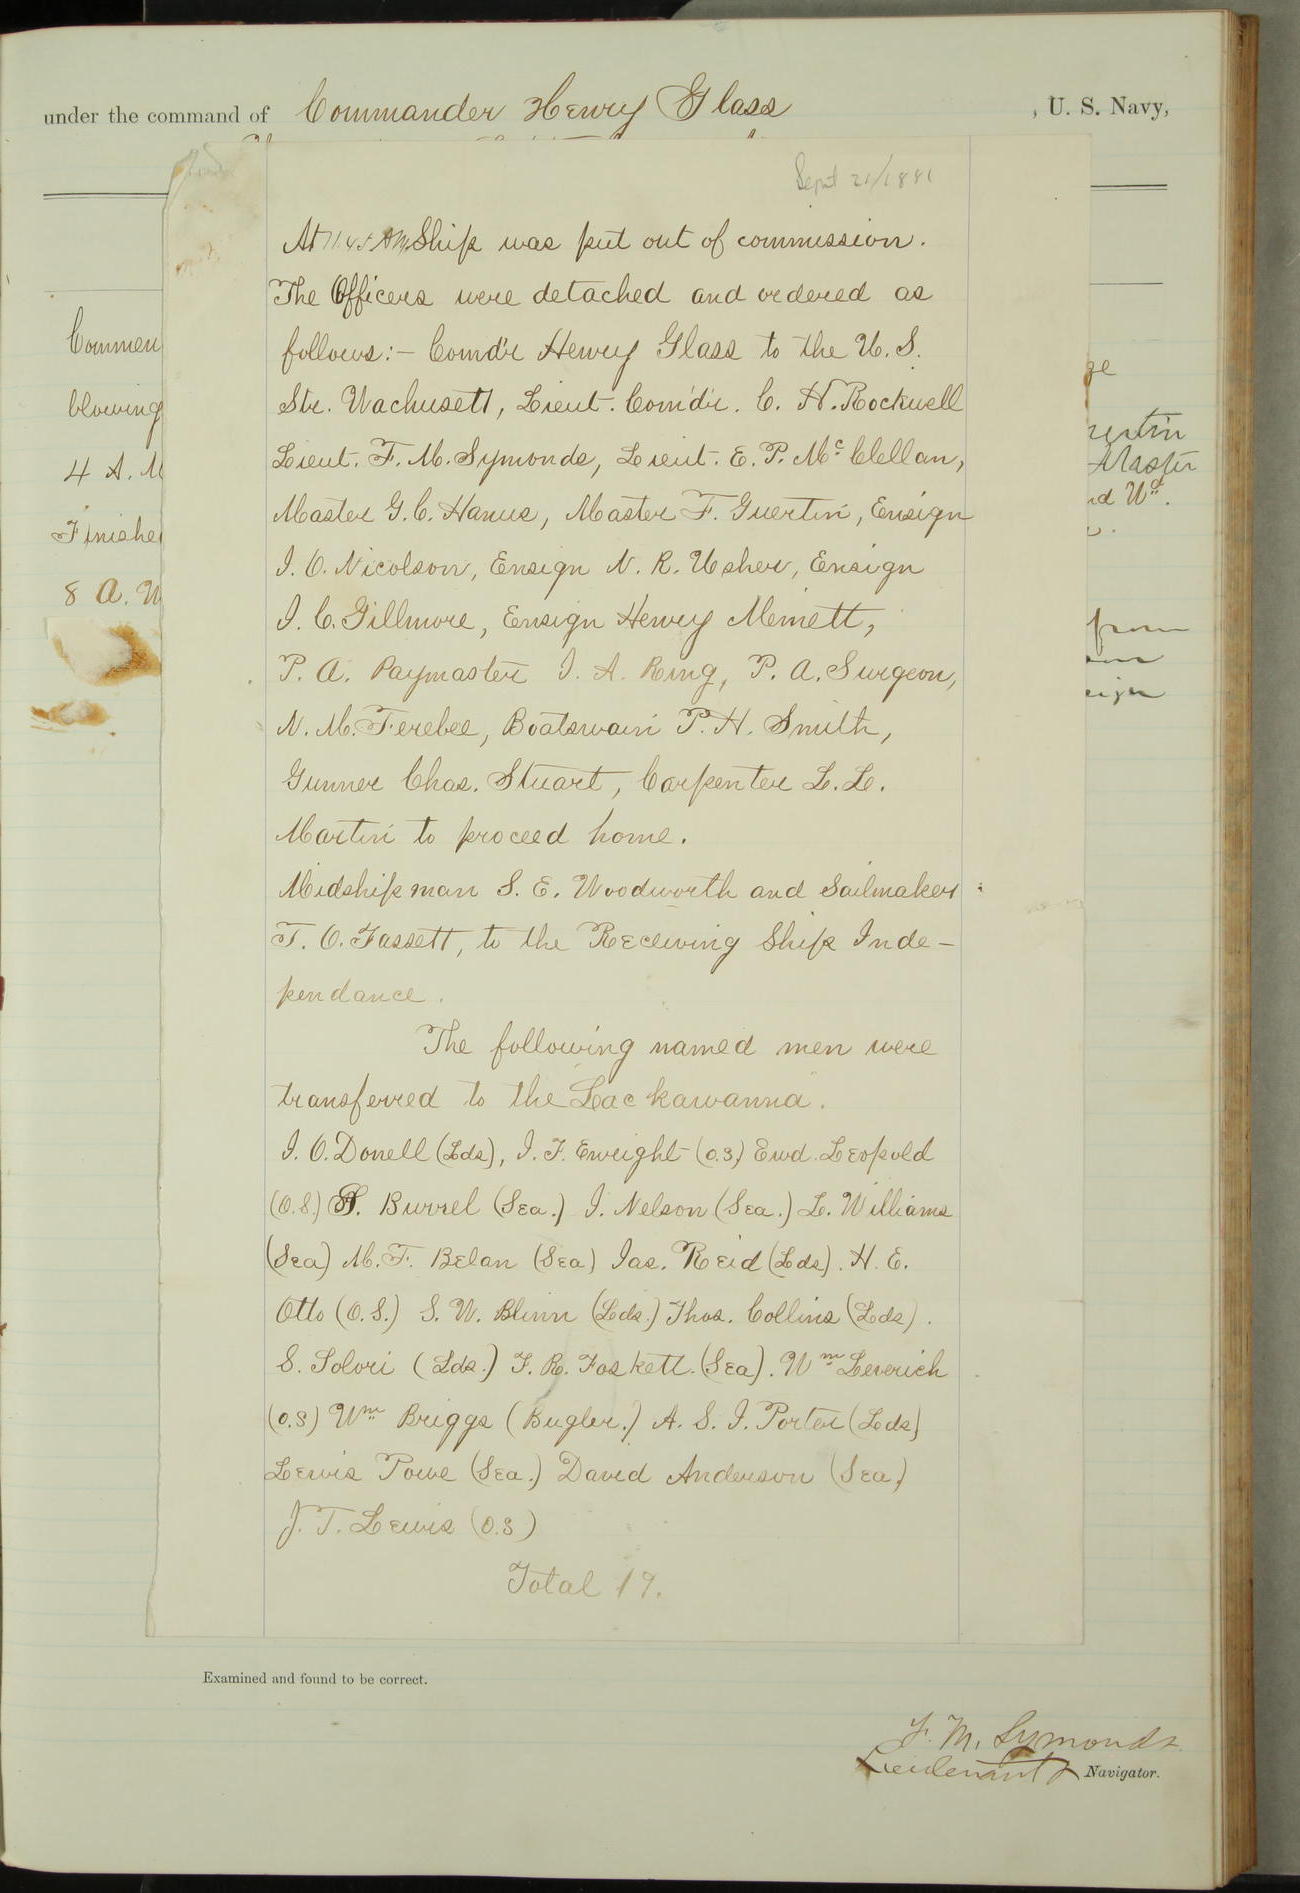 under the command of Commander Henry Glass , U. S. Navy,
Sept 21/1881
At 11.45 AM Ship was put out of commission.
The Officers were detached and ordered as
follows:– Comd'r Henry Glass to the U. S.
Str. Wachusett, Lieut. Com'dr. C. H. Rockwell
Lieut. F. M. Symonds, Lieut. E. P. Mc Clellan,
Master G. C. Hanus, Master F. Guertin, Ensign
J. O. Nicolson, Ensign N. R. Usher, Ensign
J. C. Gillmore, Ensign Henry Minett,
P. A. Paymaster J. A. Ring, P. A. Surgeon,
N. M. Ferebee, Boatswain P. H. Smith,
Gunner Chas. Stuart, Carpenter L. L.
Martin to proceed home.
Midshipman S. E. Woodworth and Sailmaker
T. O. Fassett, to the Receiving Ship Inde-
pendance.
The following named men were
transferred to the "Lackawanna".
J. O. Donell (Lds), J. F. Enright (O.S) Ewd. Leopold
(O.S.) Burrel (Sea.) J. Nelson (Sea.) L. Williams
(Sea) M. F. Belan (Sea) Jas. Reid (Lds). H. E.
Otto (O.S.) S. W. Blinn (Lds.) Thos. Collins (Lds).
S. Solovi (Lds.) F. R. Foskett. (Sea). Wm Leverich
(O.S) Wm Briggs (Bugler.) A. S. J. Porter (Lds)
Lewis Powe (Sea.) David Anderson (Sea)
J. T. Lewis (O.S)
Total 19.
Commen
blowing
4 A. M
Finishe
8 A. M
Master
from
Examined and found to be correct.
F. M. Symonds
Lieutenant & Navigator.